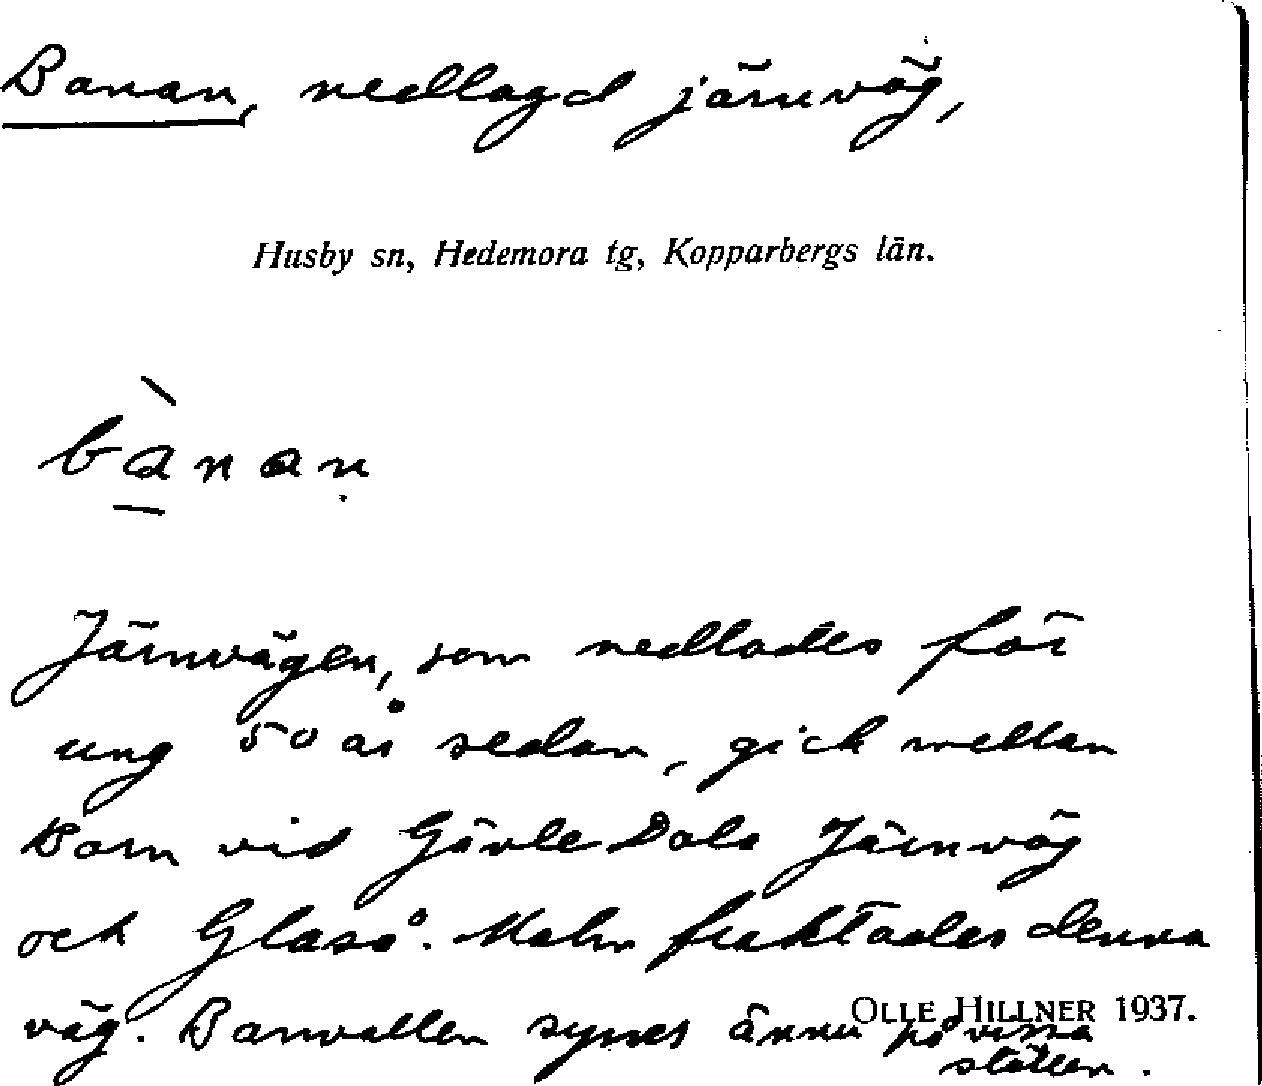 Banan, nedlagd järnväg,
Husby sn, Hedemora tg, Kopparbergs län.
bànan
Järnvägen, som nedlades för
ung 50 år sedan, gick mellan
Born vid Gävle Dala Järnväg
och Glaså. Malm fraktades denna
väg. Banvallen synes ännu på vissa
ställen.
OLLE HILLNER 1937.